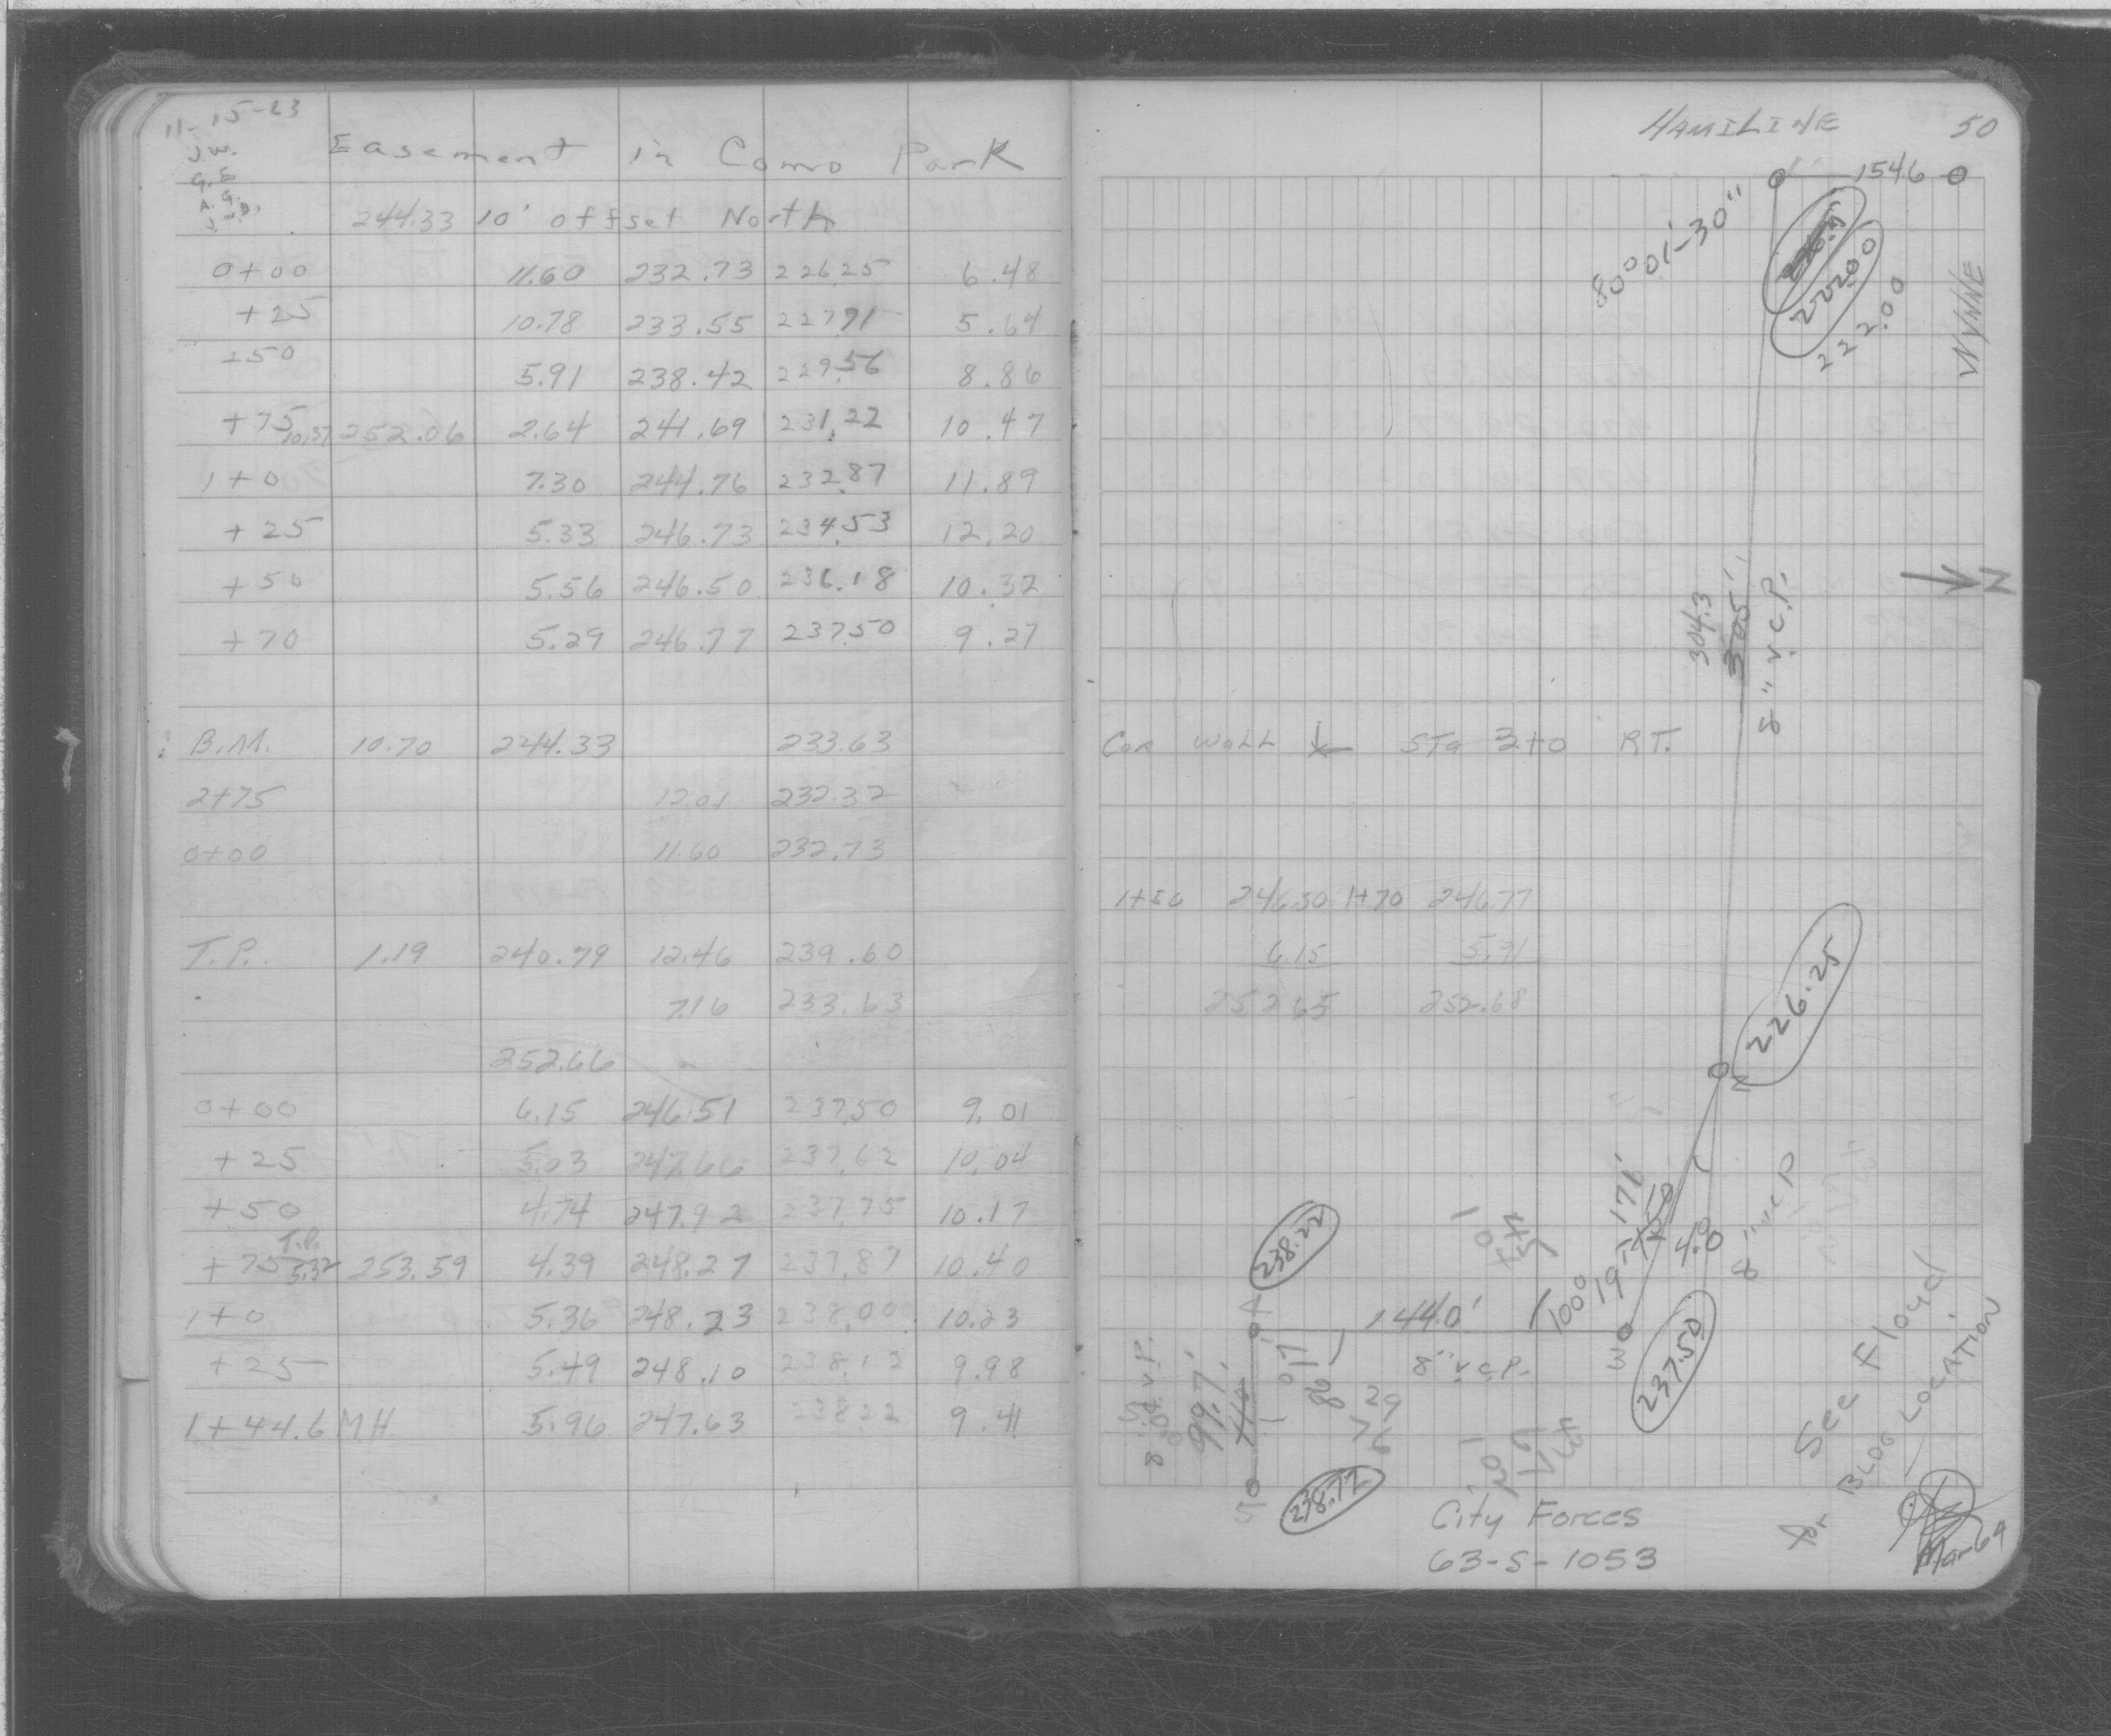 11-15-63
J.W.
G.E
A.G.
Easement in Como Park
244.33 10' offset North
0+00 11.60 232.73 226.25 6.48
+25 10.78 233.55 227.91 5.64
+50 5.91 238.42 229.56 8.86
+75 10.37 252.06 2.64 241.69 231.22 10.47
1+0 7.30 244.76 232.87 11.89
+25 5.33 246.73 234.53 12.20
+50 5.56 246.50 236.18 10.32
+70 5.29 246.77 237.50 9.27
B.M. 10.70 244.33 233.63
2+75 12.01 232.32
0+00 11.60 232.73
T.P. 1.19 240.79 12.46 239.60
7.16 233.63
252.66
0+00 6.15 246.51 237.50 9.01
+25 5.03 247.66 237.62 10.04
+50 4.74 247.92 237.75 10.17
T.P.
+75 5.32 253.59 4.39 248.27 237.87 10.40
1+0 5.36 248.23 238.00 10.23
+25 5.49 248.10 238.12 9.98
1+44.6 M.H. 5.96 247.63 238.22 9.41
HAMILINE 50
154.6
80°01'-30"
222.00
222.00
WYNNE
N
304.3
305'
8" V.C.P.
Cor Wall Sta 2+0 RT.
1+50 246.50 1+70 246.77
6.15 5.91
252.65 252.68
226.25
171'
8" VCP
238.22
144.0'
100° 19'
8" V.C.P.
237.50
99.7'
238.72
See Floyd
for BLDG LOCATION
City Forces
63-S-1053
Mar 64